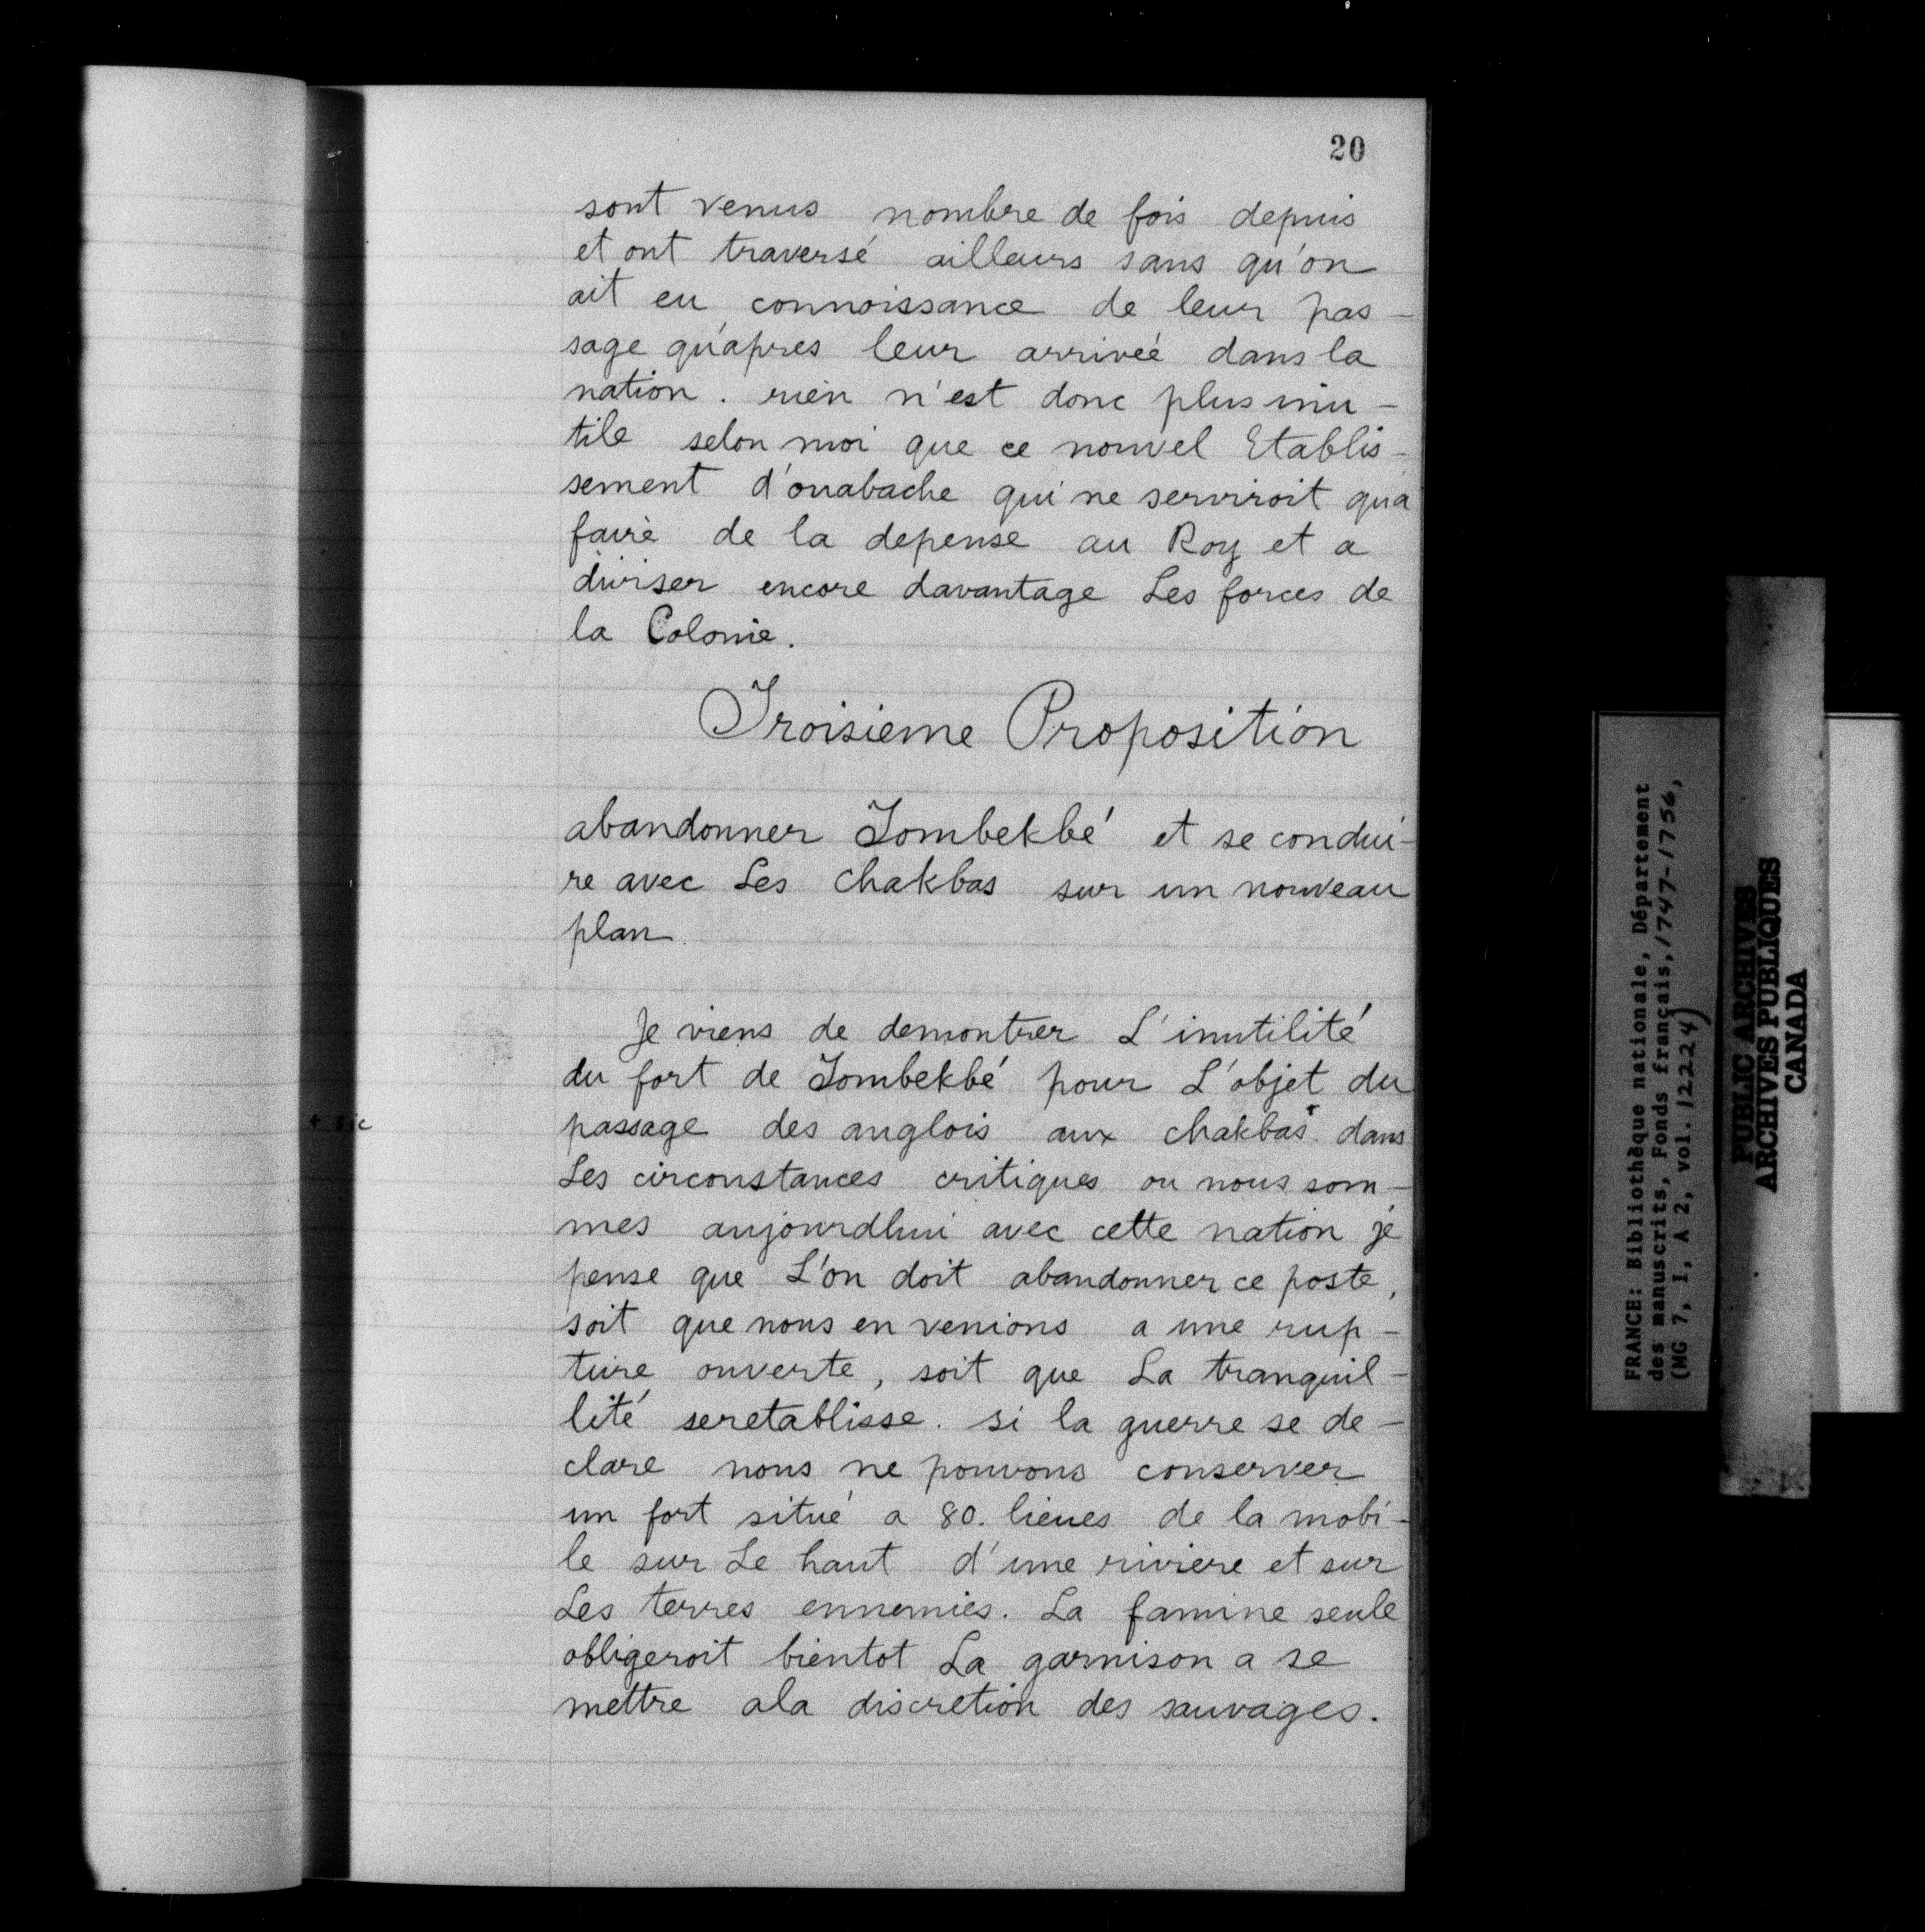 20
sont venus nombre de fois depuis
et ont traversé ailleurs sans qu'on
ait eu connoissance de leur pas-
sage qu'apres leur arriveé dans la
nation. rien n'est donc plus inu-
tile selon moi que ce nouvel Etablis-
sement d'ouabache qui ne serviroit qua
faire de la depense au Roy et a
diviser encore davantage Les forces de
la Colonie.
Troisieme Proposition
abandonner Tombekbé et se condui-
re avec Les chakbas sur un nouveau
plan.
Je viens de demontrer L'inutilité
du fort de Tombekbé pour L'objet du
+ sic
passage des anglois aux chakbas+ dans
Les circonstances critiques ou nous som-
mes aujourdhui avec cette nation je
pense que L'on doit abandonner ce poste,
soit que nous en venions a une rup-
ture ouverte, soit que La tranquil-
lité seretablisse. si la guerre se de-
clare nous ne pouvons conserver
un fort situé a 80. lieues de la mobi-
le sur Le haut d'une riviere et sur
Les terres ennemies. La famine seule
obligeroit bientot La garnison a se
mettre ala discretion des sauvages.
FRANCE: Bibliothèque nationale, Département
des manuscrits, Fonds français, 1747-1756,
(MG 7, I, A 2, vol. 12224)
PUBLIC ARCHIVES
ARCHIVES PUBLIQUES
CANADA